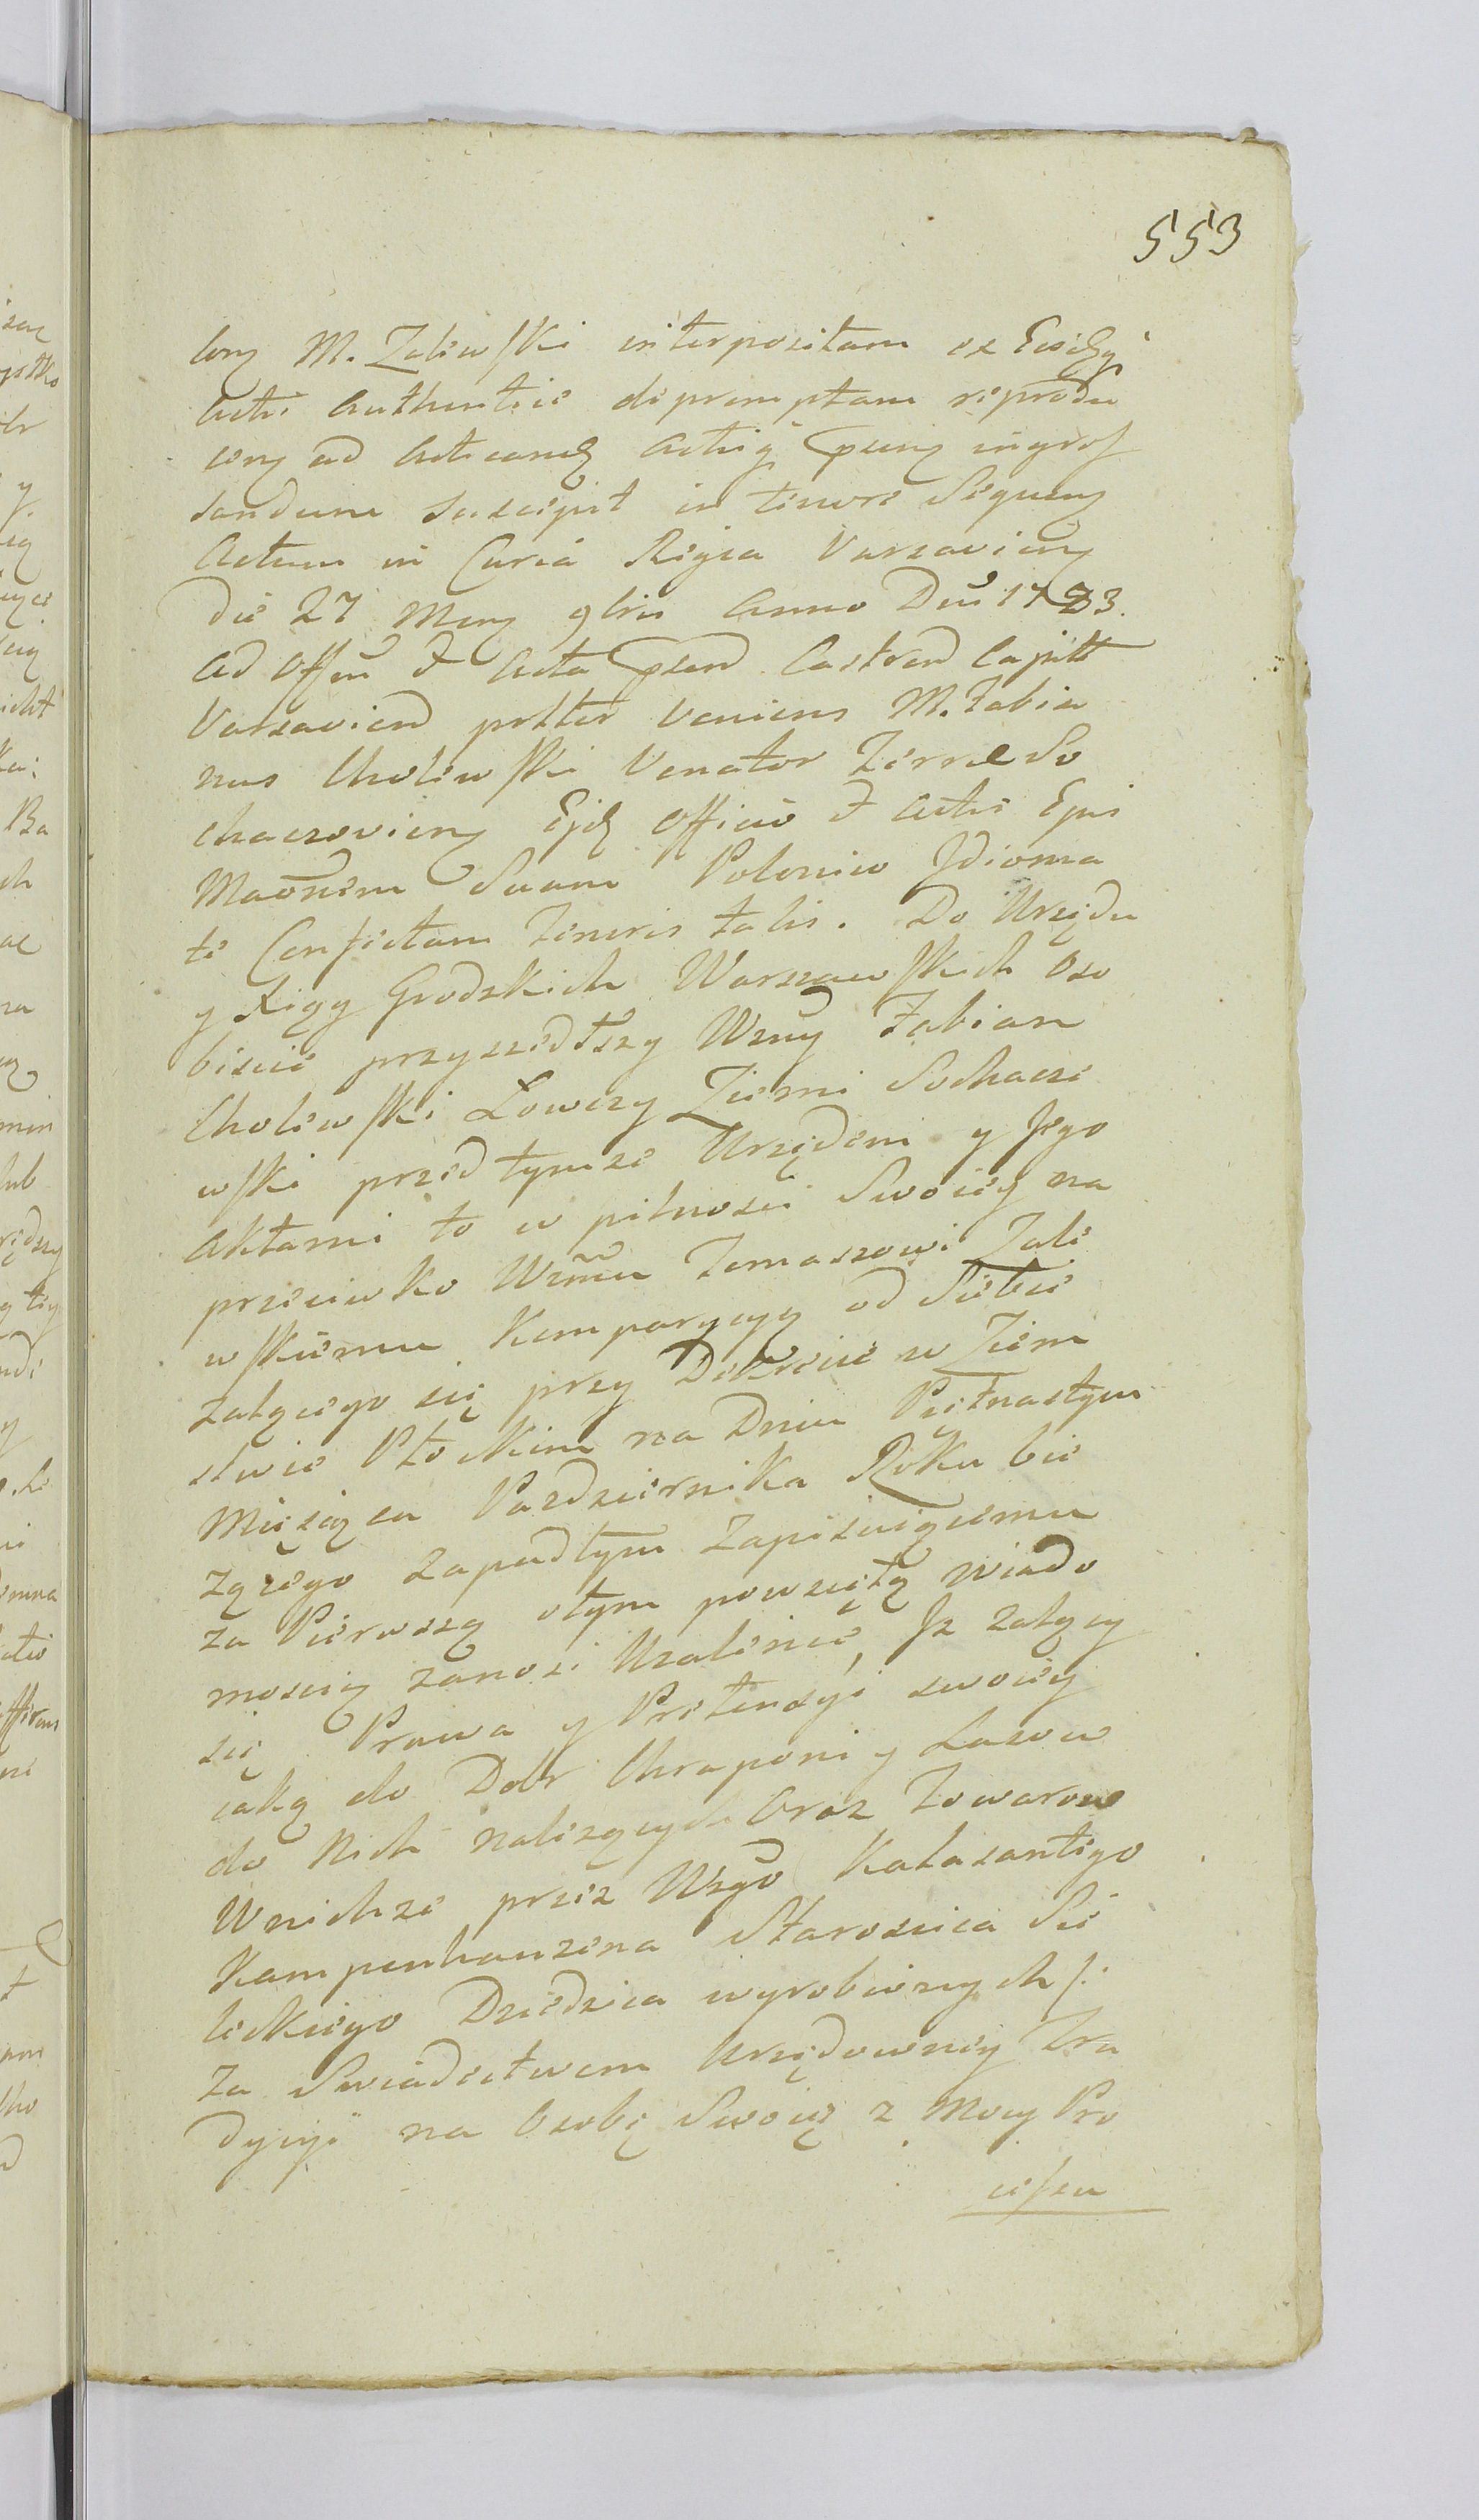 553
lem M. Zalewski interpositam ex Eisdq̃
Actis Authentice depromptam reprodu
cen̄ ad Acticand Actisq̃ p̄sen̄ ingros
sandum suscepit in tenore Sequen̄
Actum in Curia Regia Varsavien̄
die 27 Men̄ 9bris Anno Dn̄i 1783.
Ad Offm̄ & Acta p̄sen̄ Castren̄ Capitt
Varsavien̄ prltter veniens M. Fabia
nus Cholewski Venator Terrae So
chaczovien̄ Ejd Officio & Actis Ejus
Maõnem Suam Polonico Jdioma
te Confectam Tenoris talis. Do Urzędu
y Xiąg Grodzkich Warszawskich Oso
biscie przyszedłszy Wżny Fabian
Cholewski Łowczy Ziemi Sochacze
wski przed tymze Urzędem y Jego
Aktami to w pilnosci Swoiey na
przeciwko Wżnmu Tomaszowi Zale
wskiemu Komparycyą od Siebie
załącego się przy Dekrecie w Ziem
stwie Płockim na Dniu Piętnastym
Miesiąca Pazdziernika Roku bie
żącego zapadłym Zapisuiącemu
za Pierwszą otym powziętą wiado
moscią zanosi Użalenie, Jz załący
się Prawa y Pretensyi swoiey
iaką do Dobr Chraponi y Lasow
do Nich należących Oraz Towarow
Wnichże przez Wżgo Kalasantego
Kampenhauzena Staroscica Sie
leckiego Dziedzica wyrobionych /:
za Swiadectwem Urzędowney Tra
dycyi na Osobę Swoią z Mocy Pro
cessu